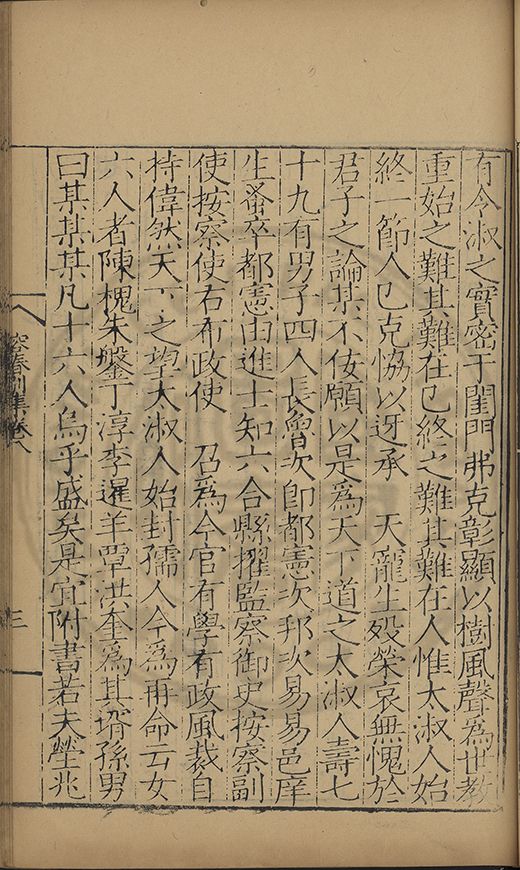 有令淑之實密于閨門弗克彰顯以樹風聲爲世教
重始之難其難在已終之難其難在人惟太淑人始
終一節人已克恊以迓承　天寵生殁榮哀無愧於
君子之論某不佞願以是爲天下道之太淑人壽七
十九有男子四人長魯次卽都憲次邦次易易邑庠
生蚤卒都憲由進士知六合縣擢監察御史按察副
使按察使右布政使　召爲今官有學有政風裁自
持偉然天下之望太淑人始封孺人今爲再命云女
六人者陳槐朱鎜丁淳李暹羊覃洪奎爲其壻孫男
曰某某某凡十六人烏乎盛矣是宜附書若夫塋兆
容春別集卷八
三